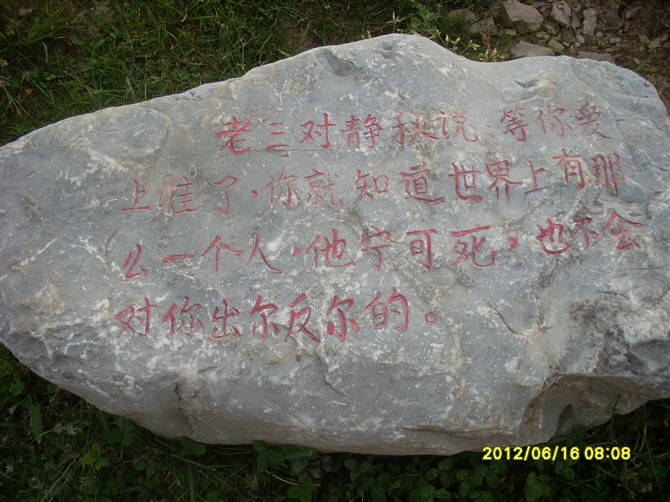 老三对静秋说:等你爱
上谁了,你就知道世界上有那
么一个人,他宁可死,也不会
对你出尔反尔的。
2012/06/16 08:08